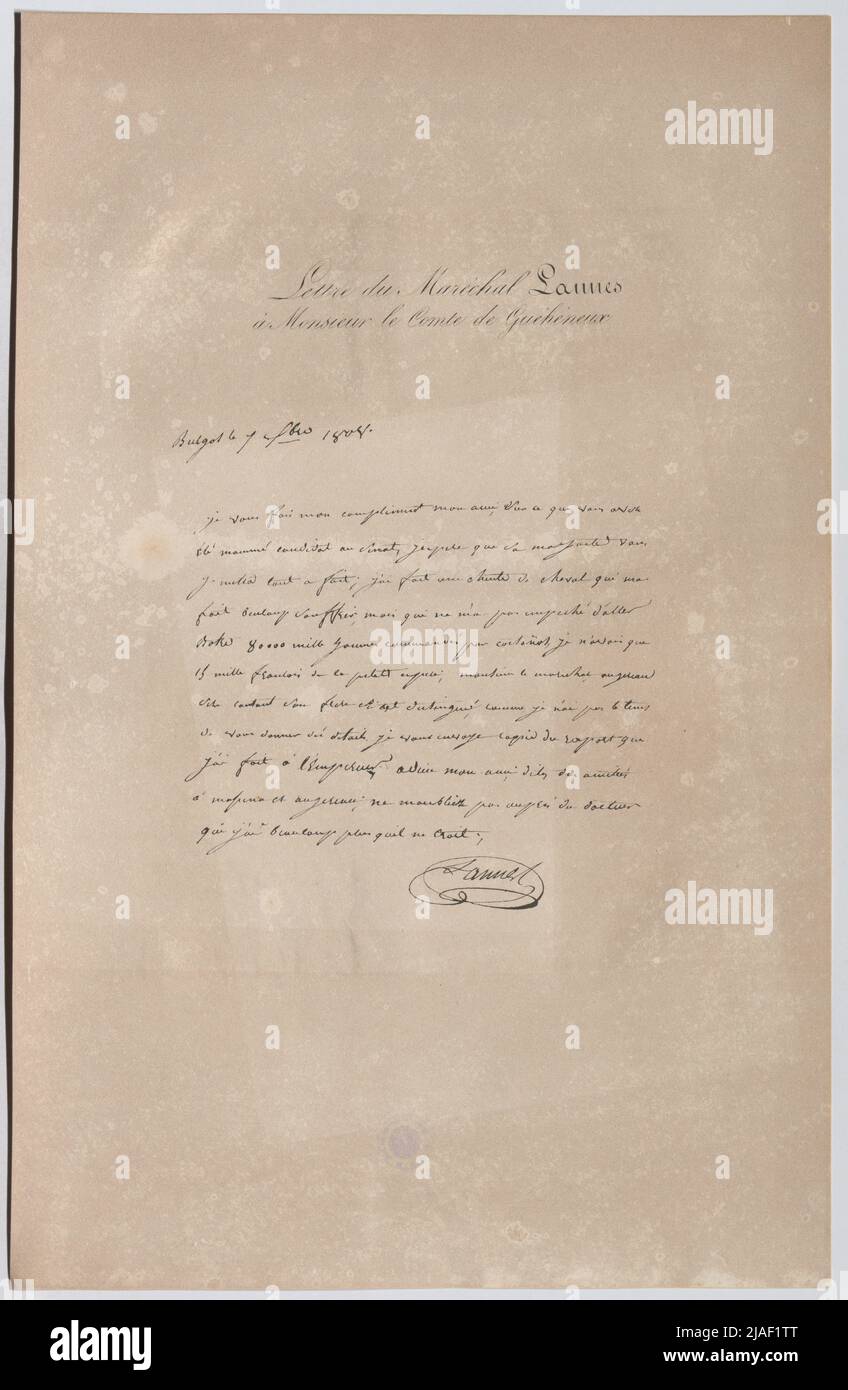 Lettre du Maréchal Lannes
à Monsieur le Comte de Guéhéneux
le 1808.
je vous fais mon compliment mon ami, de ce que vous avez
été nommé candidat au Senat, j'espere que sa majesté vous
tout a fait; j'ai fait une chute de cheval qui m'a
fait boucoup souffrir, mais qui ne m'a pas empeché d'aller
80000 mille par je n'avois que
15 mille francois de la petite monsieur le marechal augereau
contant son frere distingué, comme je n'ai pas le tems
de vous donner des details je vous envoye copie du raport que
j'ai fait à l'Empereur, adieu mon ami, dites des amitiés
à masena et augereau; ne m'oubliez pas aupres du docteur
que j'ai beaucoup plus qu'il ne croit;
Lannes
alamy
a
alamy
Image ID: 2JAF1TT
www.alamy.com